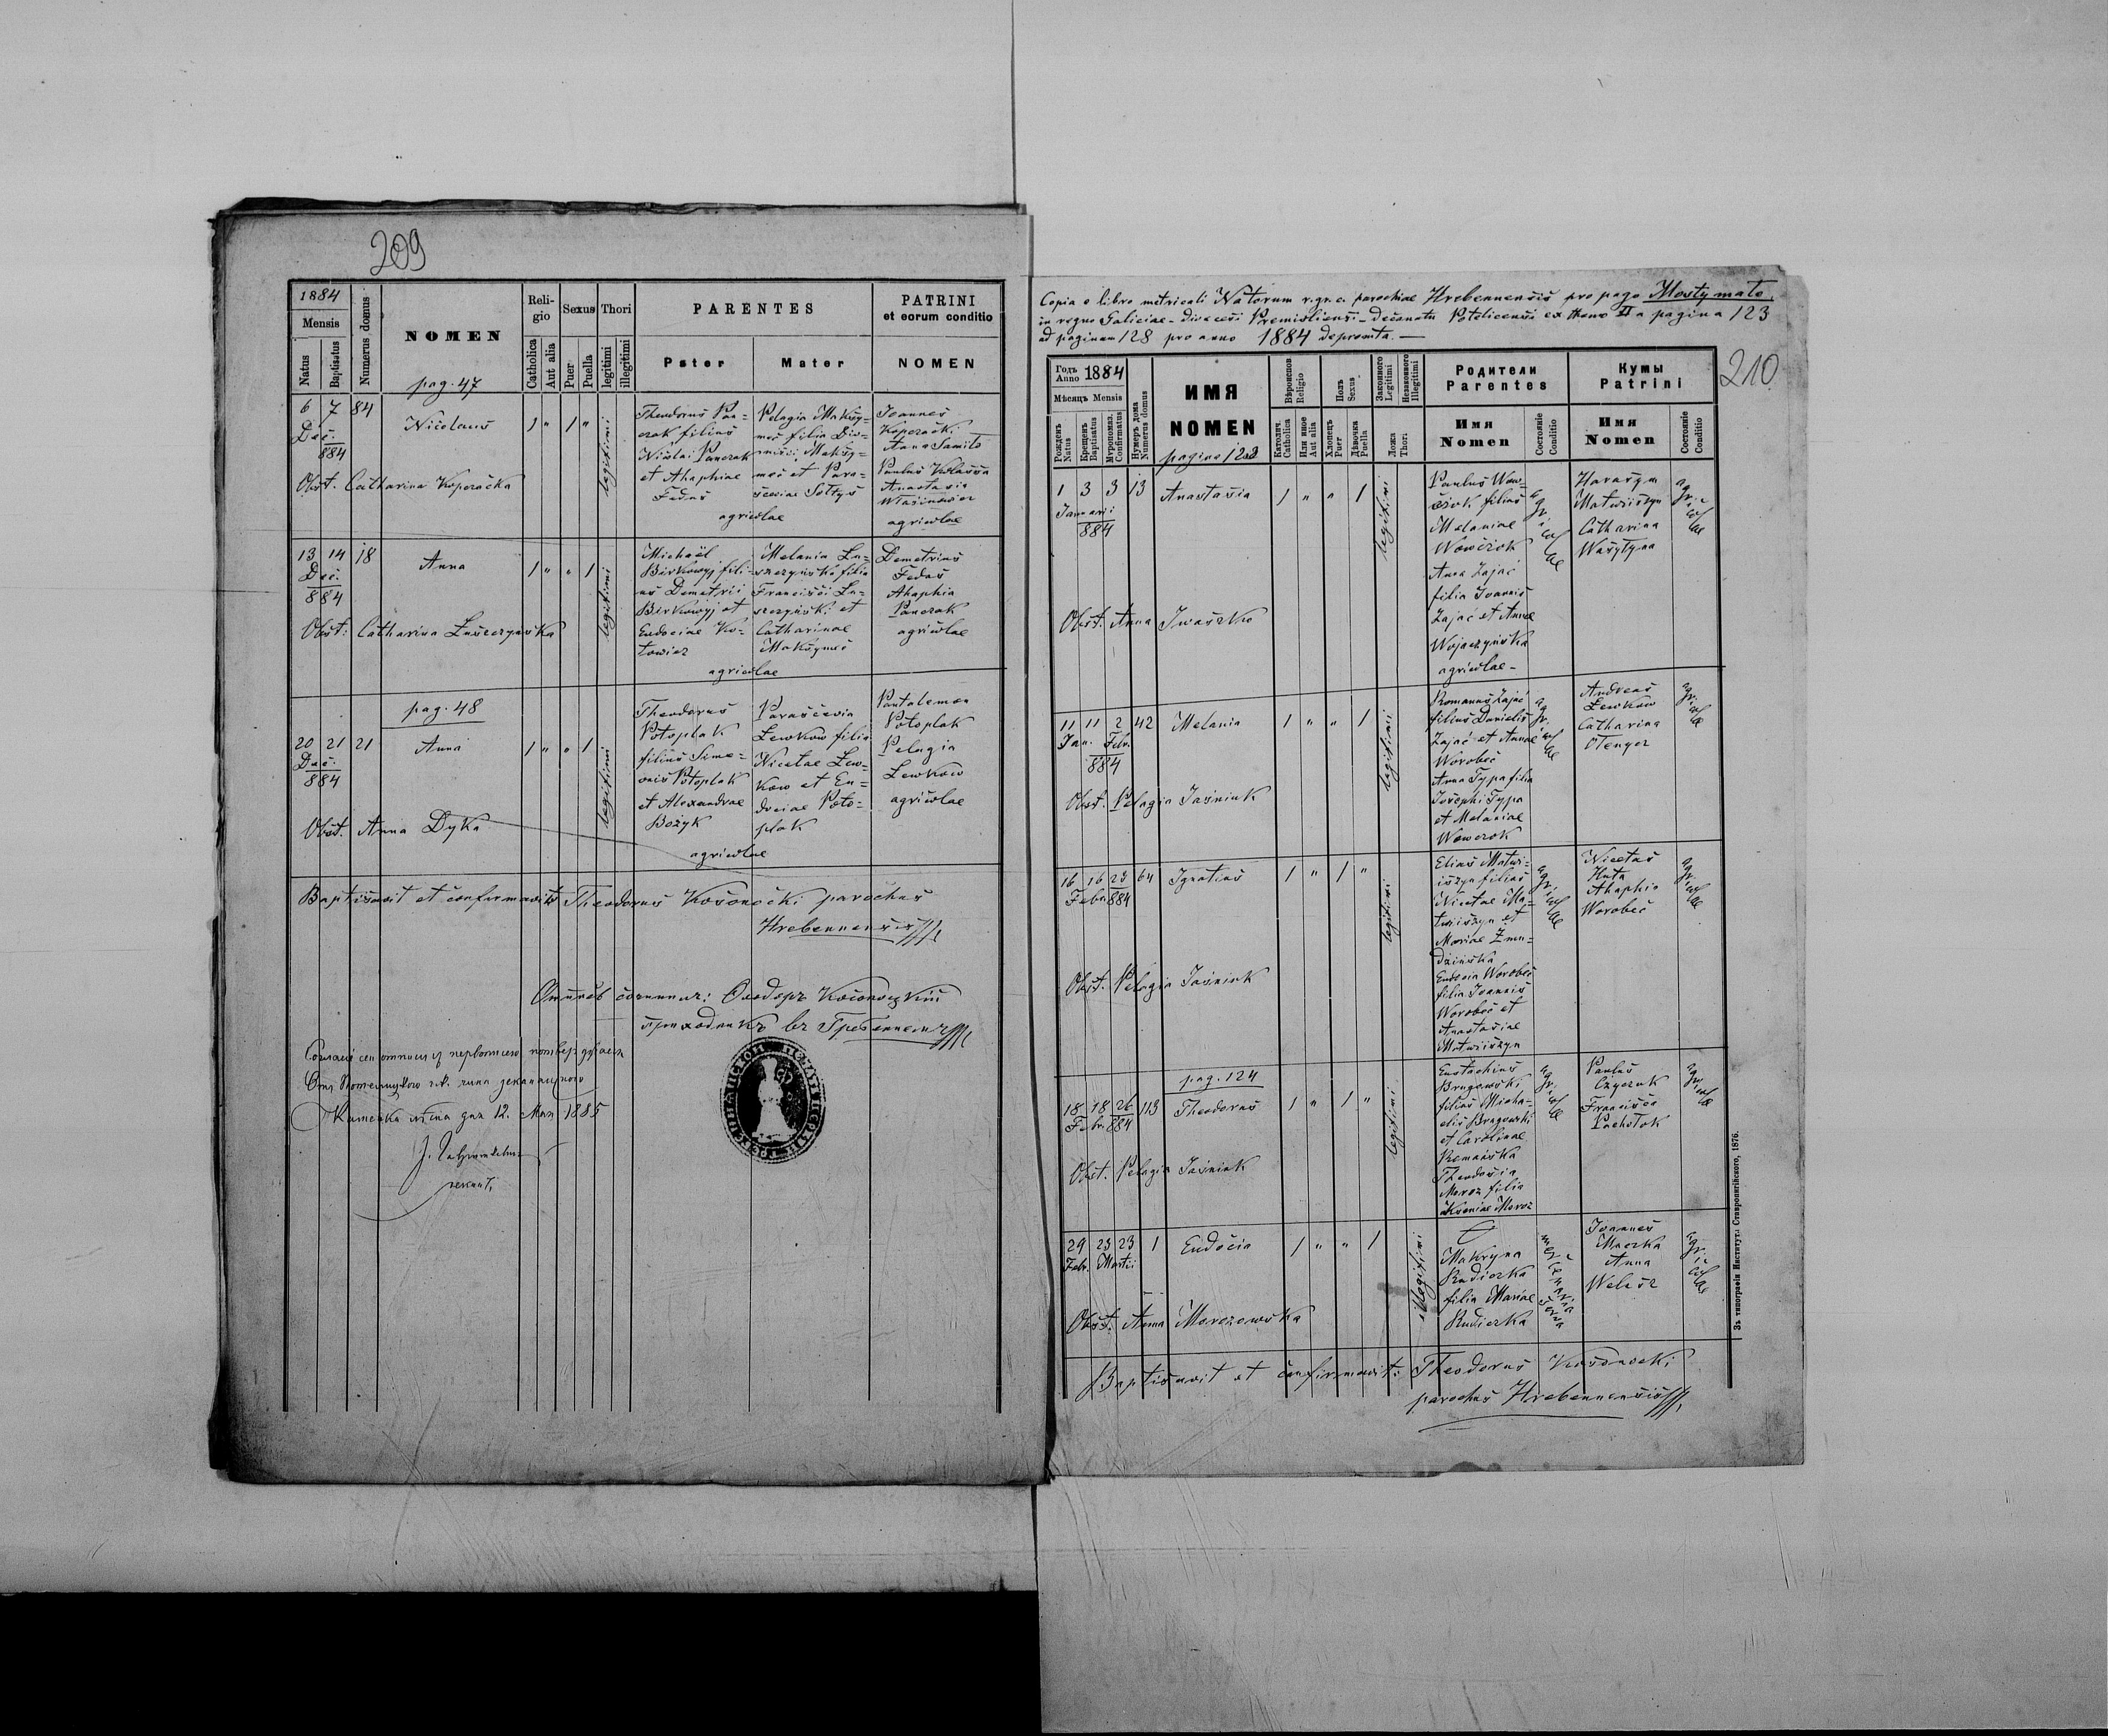 209
1884
Mensis
Natus
Baptisatus
Numerus domus
NOMEN
pag. 47
Reli-
gio
Catholica
Aut alia
Sexus
Puer
Puella
Thori
legitimi
illegitimi
PARENTES
Pater
Mater
PATRINI
et eorum conditio
NOMEN
6 7 84
Dec.
884
Nicolaus
1 " 1 "
legitimi
Theodorus Pan-
czak filius
Nicolai Panczak
et Ahaphiae
Fedus
Pelagia Maksy-
meć filia Dio-
nisii Maksy-
meć et Para-
sceviae Sołtys
agricolae
Joannes
Koperacki
Anna Samiło
Paulus
Anastasia
agricolae
Obst. Catharina Koperacka
13 14 18
Dec.
884
Anna
1 " " 1
legitimi
Michaël
Birkowyj fili-
us Demetrii
Birkowyj et
Eudociae Ko-
towicz
Melania Łu-
szczyńska filia
Francisci Łu-
szczyński et
Catharinae
Maksymeć
agricolae
Demetrius
Fedus
Ahaphia
Panczak
agricolae
Obst: Catharina Łuszczyńska
pag. 48
20 21 21
Dec.
884
Anna
1 " " 1
legitimi
Theodorus
Potoplak
filius Sime-
onis Potoplak
et Alexandrae
Bożyk
Parascevia
Lewkow filia
Nicetae Lew-
kow et Eu-
dociae Poto-
plak
agricolae
Pantalemon
Potoplak
Pelagia
Lewkow
agricolae
Obst. Anna Dyka
Baptisavit et confirmavit Theodorus Kosonocki parochus
Hrebennensis
1885
210
Copia e libro metricali Natorum r. gr. c. parochiae Hrebennensis pro pago Mosty małe
in regno Galiciae - dioecesi Premisliensi - decanatu Potelicensi ex thomo II a pagina 123
ad paginam 128 pro anno 1884 deprompta. —
Годъ
Anno 1884
Мѣсяцъ Mensis
Рожденъ
Natus
Крещенъ
Baptisatus
Мѵропомаз.
Confirmatus
Нумеръ дома
Numerus domus
ИМЯ
NOMEN
pagina 123
Вѣроисповѣ
Religio
Католич.
Catholica
Или иное
Aut alia
Полъ
Sexus
Хлопецъ
Puer
Дѣвочка
Puella
Законного
Legitimi
Незаконного
Illegitimi
Ложа
Thori
Родители
Parentes
Имя
Nomen
Состояніе
Conditio
Кумы
Patrini
Имя
Nomen
Состояніе
Conditio
1 3 3 13
Januarii
884
Anastasia
1 " " 1
legitimi
Paulus Wow-
czok filius
Melaniae
Wowczok
Anna Zając
filia Joannis
Zając et Annae
Wojaczyńska
agricolae
agricolae
Harasym
Matwiiszyn
Catharina
Wasyłyna
agricolae
Obst. Anna Iwaszko
11 11 2 42
Jan. Febr.
884
Melania
1 " " 1
legitimi
Romanus Zając
filius Danielis
Zając et Annae
Worobec
Anna Typa filia
Josephi Typa
et Melaniae
Wowczok
agricolae
Andreas
Lewkow
Catharina
Otenger
agricolae
Obst. Pelagia Jaśniuk
16 16 23 64
Febr. 884
Ignatius
1 " 1 "
legitimi
Elias Matwi-
iszyn filius
Nicetae Ma-
twiiszyn et
Mariae Zmu-
dzińska
Eudocia Worobec
filia Joannis
Worobec et
Anastasiae
Matwiiszyn
agricolae
Nicetas
Huta
Ahaphia
Worobec
agricolae
Obst. Pelagia Jaśniuk
pag. 124
18 18 26 113
Febr. 884
Theodorus
1 " 1 "
legitimi
Eustachius
Brugowski
filius Micha-
elis Brugowski
et Carolinae
Romańska
Theodosia
Moroz filia
Xseniae Moroz
agricolae
Paulus
Czyczuk
Francisca
Pachołok
agricolae
Obst. Pelagia Jaśniuk
29 23 23 1
Febr. Martii
Eudocia
1 " " 1
illegitimi
Makryna
Rudiczka
filia Mariae
Rudiczka
mercenaria
Joannes
Maczka
Anna
agricolae
Obst. Anna Morozowska
Baptisavit et confirmavit: Theodorus Kosonocki
parochus Hrebennensis
Зъ типографіи Институт. Ставропигійского, 1876.